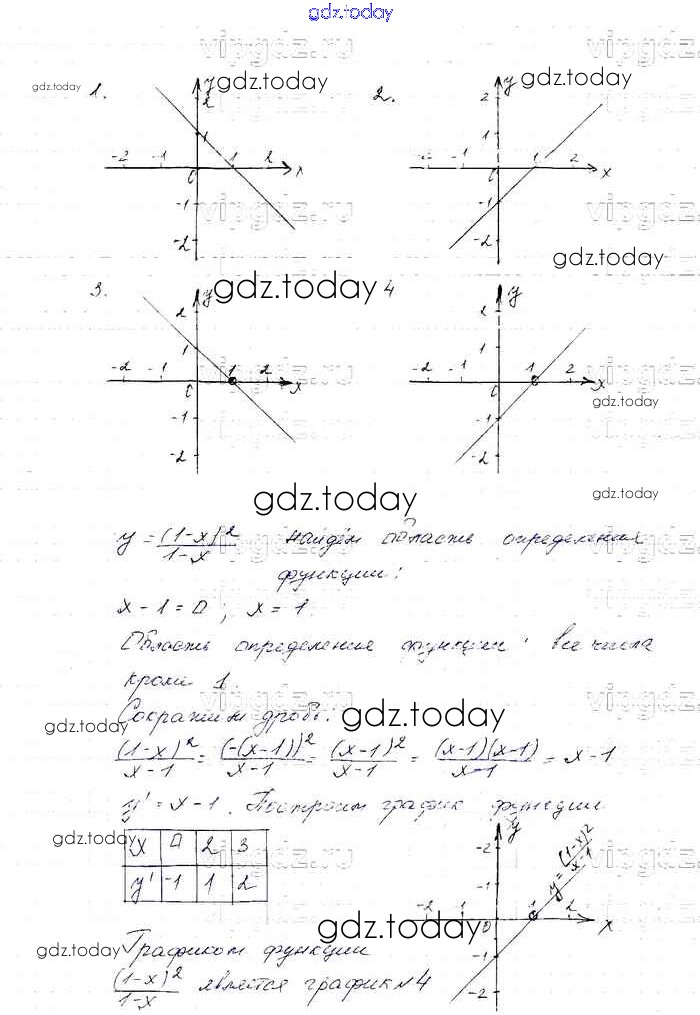 gdz.today
vipgdz.ru vipgdz.ru
gdz.today 1. y gdz.today 2. y gdz.today
2 2
1 1
-2 -1 0 1 2 x -2 -1 0 1 2 x
-1 -1
vipgdz.ru vipgdz.ru
-2 -2
gdz.today
3. y gdz.today 4 y
2 2
1 1
vipgdz.ru vipgdz.ru
-2 -1 0 1 2 x -2 -1 0 1 2 x
gdz.today
-1 -1
vipgdz.ru vipgdz.ru
-2 -2
gdz.today gdz.today
y = (1-x)^2/1-x Найдём область определения
функции:
x - 1 = 0; x = 1.
Область определения функции: все числа
кроме 1.
Сократим дробь:
gdz.today gdz.today vipgdz.ru
(1-x)^2/x-1 = (-(x-1))^2/x-1 = (x-1)^2/x-1 = (x-1)(x-1)/x-1 = x-1
y' = x-1. Построим график функции
gdz.today
x 0 2 3
y' -1 1 2
vipgdz.ru vipgdz.ru
y
2
1
y = (1-x)^2/x-1
-2 -1 0 1 2 x
-1
-2
gdz.today gdz.today
Графиком функции
(1-x)^2/1-x является график №4